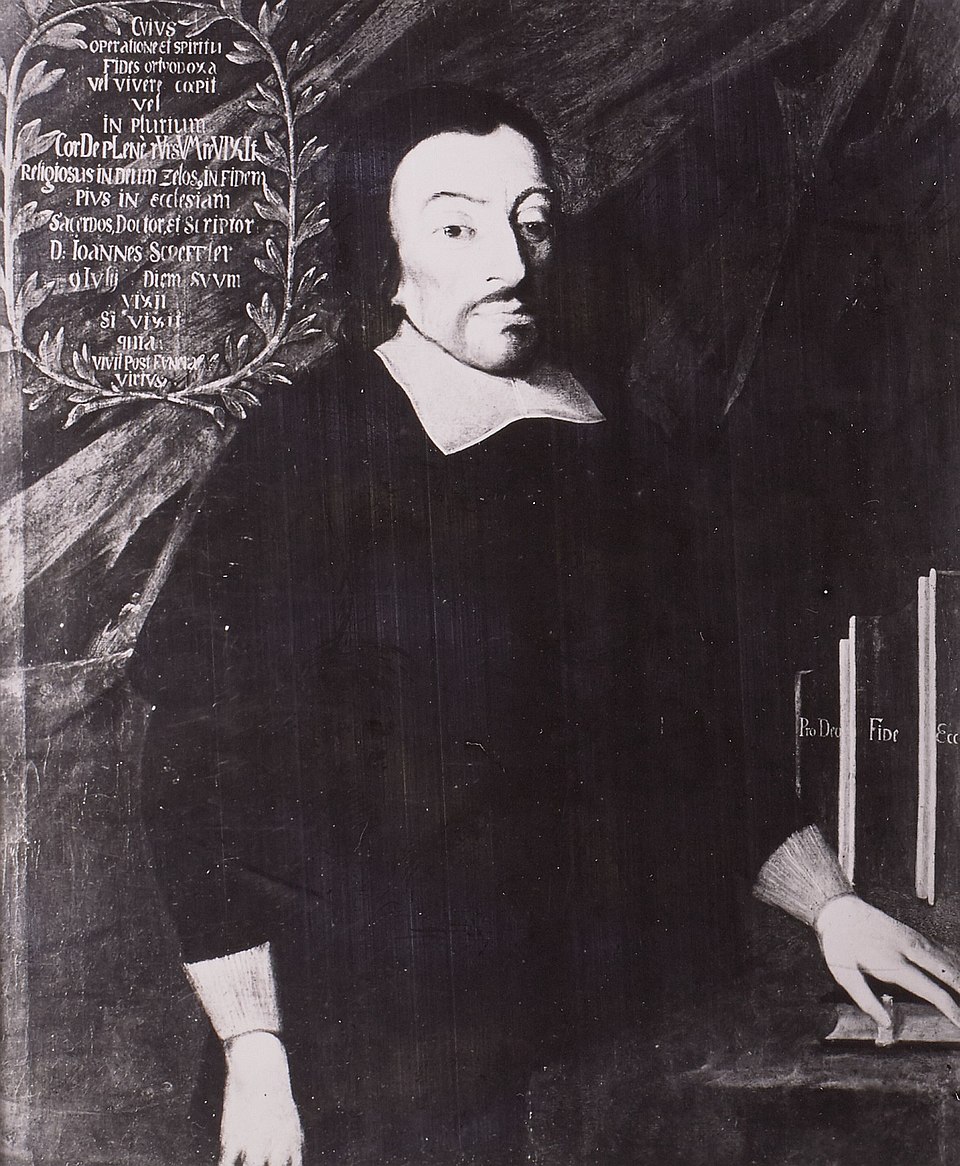 CVIVS
operatione et spiritu
Fides orthodoxa
vel vivere cœpit
vel
in plurium
CorDe pLenè rVrsVM reVIXIt
Religiosus in Deum Zelos, in Fidem
Pivs in ecclesiam
Sacerdos, Doctor, et Scriptor
D: Ioannes Scheffler
9 Iulij Diem svvm
vixit
Si vixit
quia
vivit Post Fvnera
virtvs
Pro Deo
Fide
Ecc